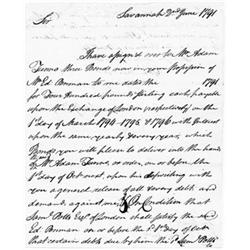 Savannah 2nd June 1791
Sir
I have assigned over to Mr. Adam
Tunno three Bonds now in your Possession of
Mr. Ed Penman to me dated the 1791
for Four Hundred Pounds Sterling each payable
upon the Exchange of London respectively on the
1st day of March 1794, 1795 & 1796 with Interest
upon the same yearly & every year, which
Bonds you will please to deliver with the hands
of Mr. Adam Tunno, or order, on or before the
1st day of October next upon his
you a general release of all & every debt and
demand against me On Condition that
Saml. Potts Esqr. of London shall satisfy the said
Ed Penman on or before the 1st day of Octr.
that certain debt due by him the sd Saml. Potts